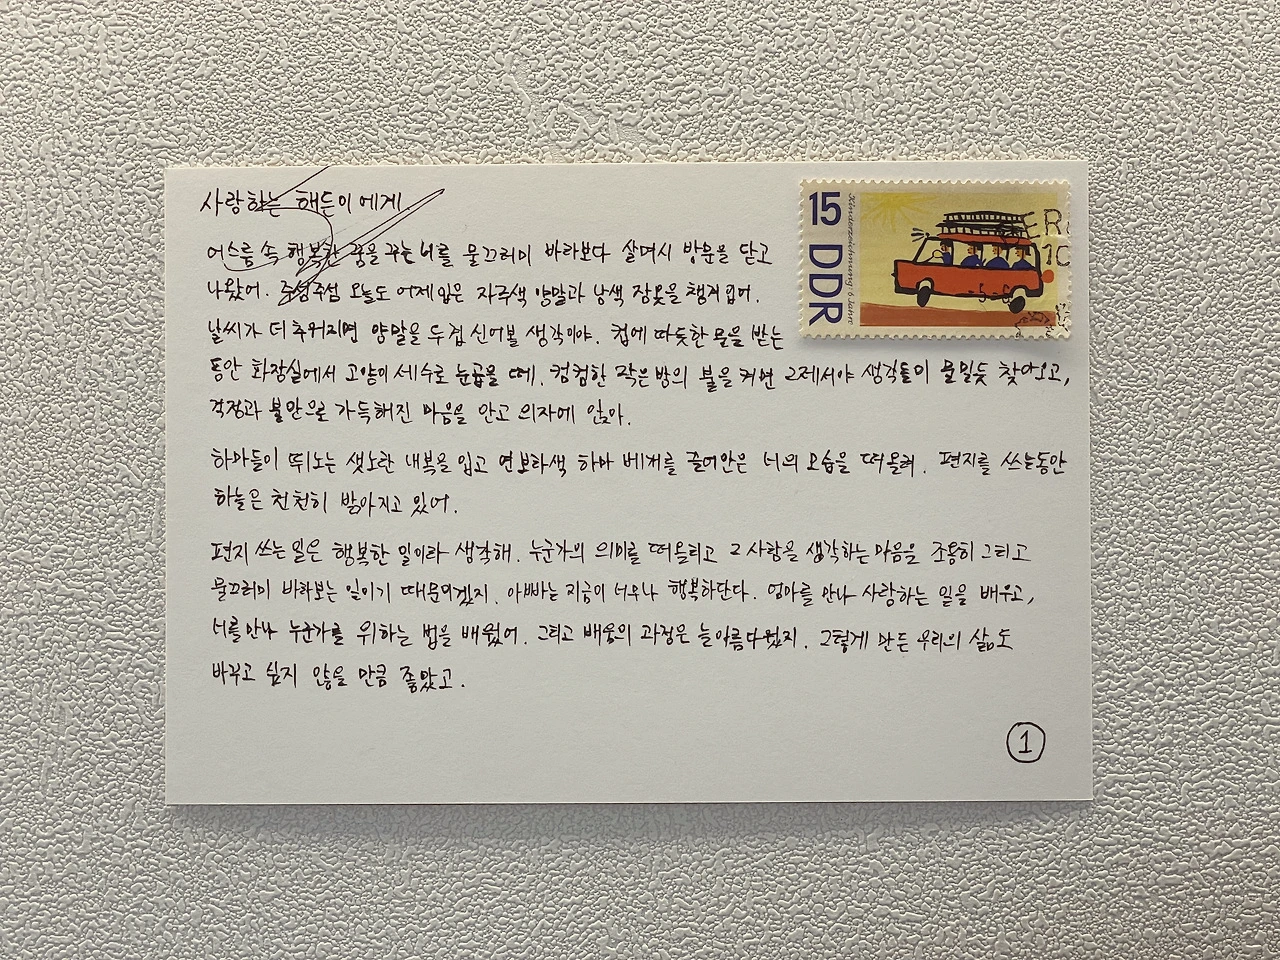 사랑하는 해든이에게.
어스름 속 행복한 꿈을 꾸는 너를 물끄러미 바라보다 살며시 방문을 닫고
나왔어. 주섬주섬 오늘도 어제 입은 자주색 양말과 남색 잠옷을 챙겨 입어.
날씨가 더 추워지면 양말을 두 겹 신어볼 생각이야. 컵에 따듯한 물을 받는
동안 화장실에서 고양이 세수로 눈곱을 떼. 컴컴한 작은 방의 불을 켜면 그제서야 생각들이 물밀듯 찾아오고,
걱정과 불안으로 가득해진 마음을 안고 의자에 앉아.
하마들이 뛰노는 샛노란 내복을 입고 연보라색 하마 베개를 끌어안은 너의 모습을 떠올려. 편지를 쓰는동안
하늘은 천천히 밝아지고 있어.
편지 쓰는 일은 행복한 일이라 생각해. 누군가의 의미를 떠올리고 그 사람을 생각하는 마음을 조용히 그리고
물끄러미 바라보는 일이기 때문이겠지. 아빠는 지금이 너무나 행복하단다. 엄마를 만나 사랑하는 일을 배우고,
너를 만나 누군가를 위하는 법을 배웠어. 그리고 배움의 과정은 늘 아름다웠지. 그렇게 만든 우리의 삶도
바꾸고 싶지 않을 만큼 좋았고.
1
15
DDR
Kinderzeichnung · 6 Jahre